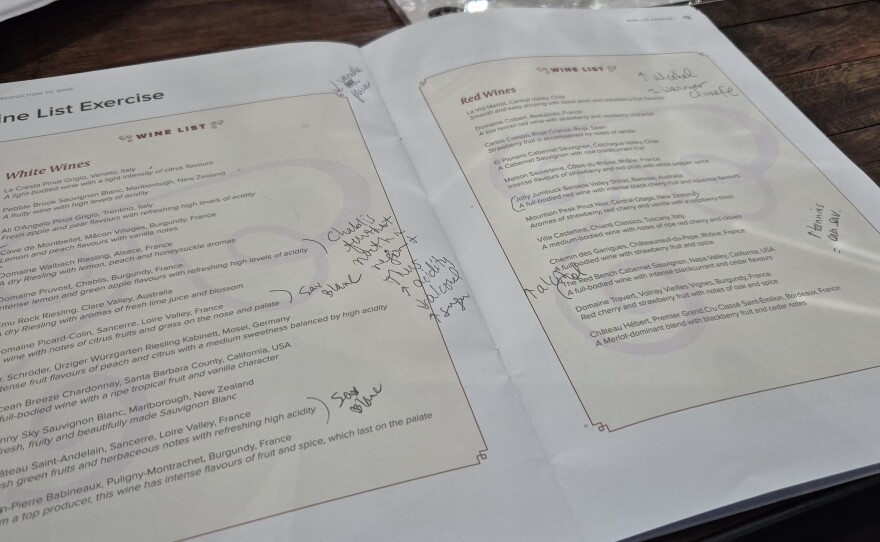 RODUCTION TO WINE
ine List Exercise
WINE LIST
White Wines
La Cresta Pinot Grigio, Veneto, Italy
A light-bodied wine with a light intensity of citrus flavours
Pebble Brook Sauvignon Blanc, Marlborough, New Zealand
A fruity wine with high levels of acidity
Ali D'Angelo Pinot Grigio, Trentino, Italy
Fresh apple and pear flavours with refreshing high levels of acidity
Cave de Montbellet, Mâcon Villages, Burgundy, France
Lemon and peach flavours with vanilla notes
Domaine Walbach Riesling, Alsace, France
A dry Riesling with lemon, peach and honeysuckle aromas
Domaine Pruvost, Chablis, Burgundy, France
ntense lemon and green apple wine with refreshing high levels of acidity
mu Rock Riesling, Clare Valley, Australia
dry Riesling with aromas of fresh lime juice and blossom
omaine Picard-Colin, Sancerre, Loire Valley, France
wine with notes of citrus fruits and grass on the nose and palate
Schröder, Ürziger Würzgarten Riesling Kabinett, Mosel, Germany
tense fruit flavours of peach and citrus with a medium sweetness balanced by high acidity
cean Breeze Chardonnay, Santa Barbara County, California, USA
full-bodied wine with a ripe tropical fruit and vanilla character
nny Sky Sauvignon Blanc, Marlborough, New Zealand
resh, fruity and beautifully made Sauvignon Blanc
âteau Saint-Andelain, Sancerre, Loire Valley, France
sh green fruits and herbaceous notes with refreshing high acidity
n-Pierre Babineaux, Puligny-Montrachet, Burgundy, France
m a top producer, this wine has intense flavours of fruit and spice, which last on the palate
Chablis
furthest
north
acidity
alcohol
Sav
Blanc
Sav
Blanc
WINE LIST EXERCISE
WINE LIST
Red Wines
↑ alcohol
= warmer
climate
Le Vol Merlot, Central Valley, Chile
Smooth and easy drinking with black plum and blackberry fruit flavours
Domaine Colbert, Beaujolais, France
A low tannin red wine with strawberry and raspberry character
Carlos Crespo, Rioja Crianza, Rioja, Spain
Strawberry fruit is accompanied by notes of vanilla
El Pionero Cabernet Sauvignon, Colchagua Valley, Chile
A Cabernet Sauvignon with ripe blackcurrant fruit
Maison Sauveterre, Côtes du Rhône, Rhône, France
Intense flavours of strawberry and red plum with white pepper spice
Jolly Jumbuck Barossa Valley Shiraz, Barossa, Australia
A full-bodied red wine with intense black cherry fruit and liquorice flavours
Mountain Peak Pinot Noir, Central Otago, New Zealand
Aromas of strawberry, red cherry and vanilla with
Villa Castellina, Chianti Classico, Tuscany, Italy
A medium-bodied wine with notes of ripe red cherry and cloves
Chemin des Garrigues, Châteauneuf-du-Pape, Rhône, France
A full-bodied wine with strawberry fruit and spice
The Red Bench Cabernet Sauvignon, Napa Valley, California, USA
A full-bodied wine with intense blackcurrant and cedar flavours
Domaine Travert, Volnay Vieilles Vignes, Burgundy, France
Red cherry and strawberry fruit with notes of oak and spice
Château Hébert, Premier Grand Cru Classé Saint-Émilion, Bordeaux, France
A Merlot-dominant blend with blackberry fruit and cedar notes
↑ alcohol
tannins
= cab sav.